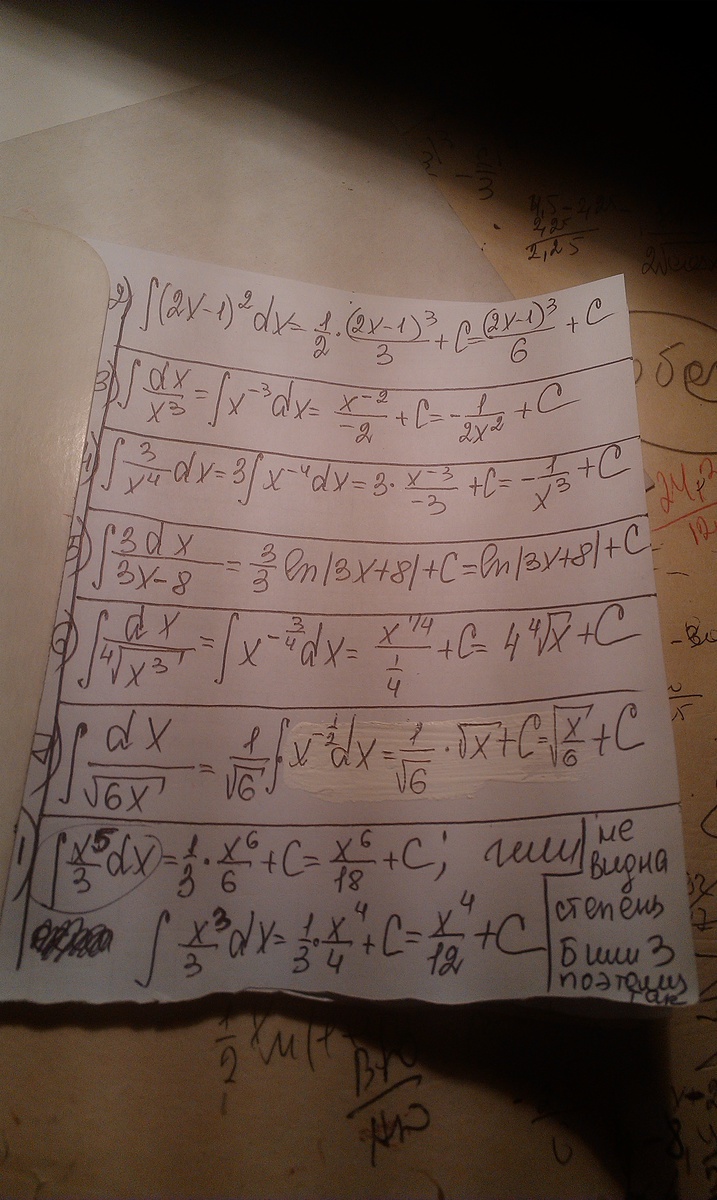 2) ∫(2x-1)²dx = 1/2 · (2x-1)³/3 + C = (2x-1)³/6 + C
3) ∫ dx/x³ = ∫x⁻³dx = x⁻²/-2 + C = -1/2x² + C
4) ∫ 3/x⁴ dx = 3∫x⁻⁴dx = 3 · x⁻³/-3 + C = -1/x³ + C
5) ∫ 3dx/3x-8 = 3/3 ln|3x+8| + C = ln|3x+8| + C
6) ∫ dx/⁴√x³ = ∫x^(-3/4)dx = x^(1/4)/(1/4) + C = 4 ⁴√x + C
7) ∫ dx/√6x = 1/√6 ∫ x^(-1/2)dx = 1/√6 · √x + C = √(x/6) + C
1) ∫ x⁵/3 dx = 1/3 · x⁶/6 + C = x⁶/18 + C; или
∫ x³/3 dx = 1/3 · x⁴/4 + C = x⁴/12 + C
не
видна
степень
5 или 3
поэтому
так
4,5-2,25
2,25
2,25
обе
12
1/2